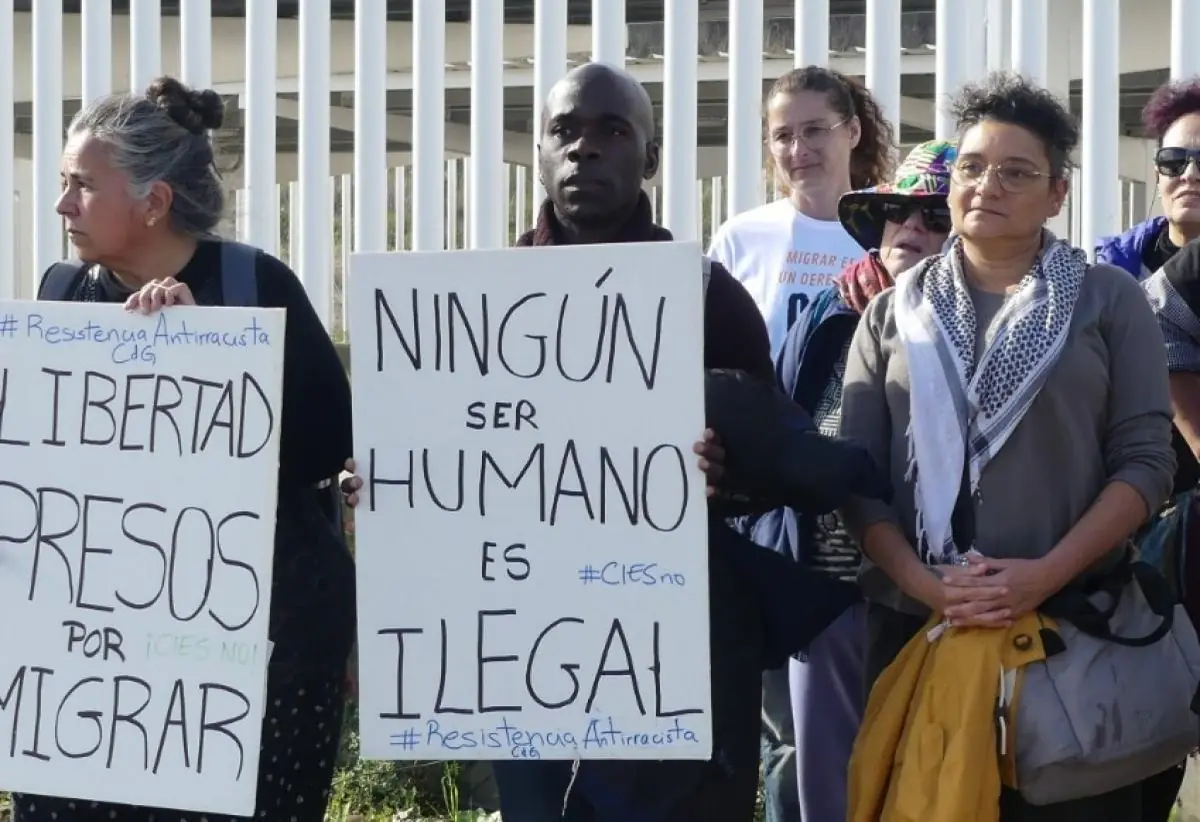 #ResistenciaAntirracista
CdG
LIBERTAD
PRESOS
POR ¡CIES NO!
MIGRAR
NINGÚN
SER
HUMANO
ES
#CIESno
ILEGAL
#Resistencia Antirracista
CdG
MIGRAR ES
UN DERE